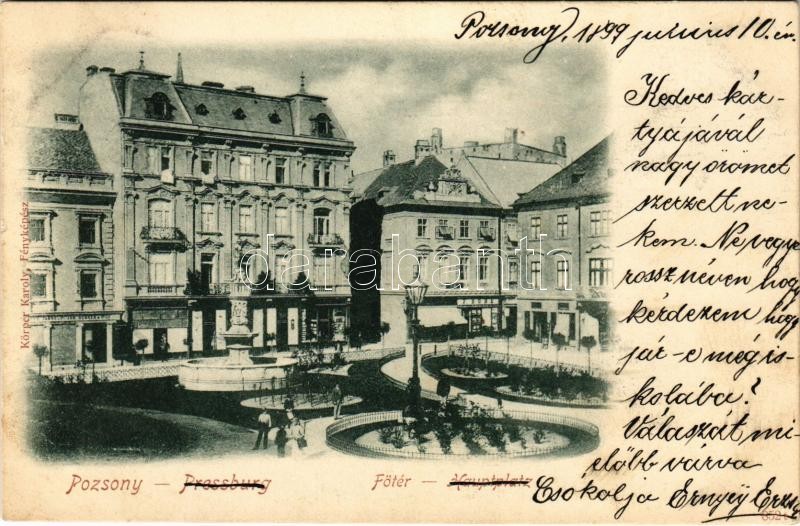 Pozsony, 1899 julius 10. én.
Kedves kár-
tyájával
nagy örömet
szerzett ne-
kem. Ne vegye
rossz néven hogy
kérdezem hogy
jár-e még is-
kolába?
Válaszát mi-
előbb várva
Csókolja Ernyey Erzsi
darabanth.com
Körper Karoly, Fényképész
Pozsony — Pressburg
Főtér — Hauptplatz